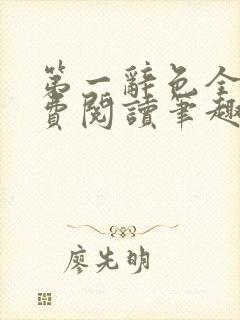 第一辭色全
費閱讀筆趣
廖先明